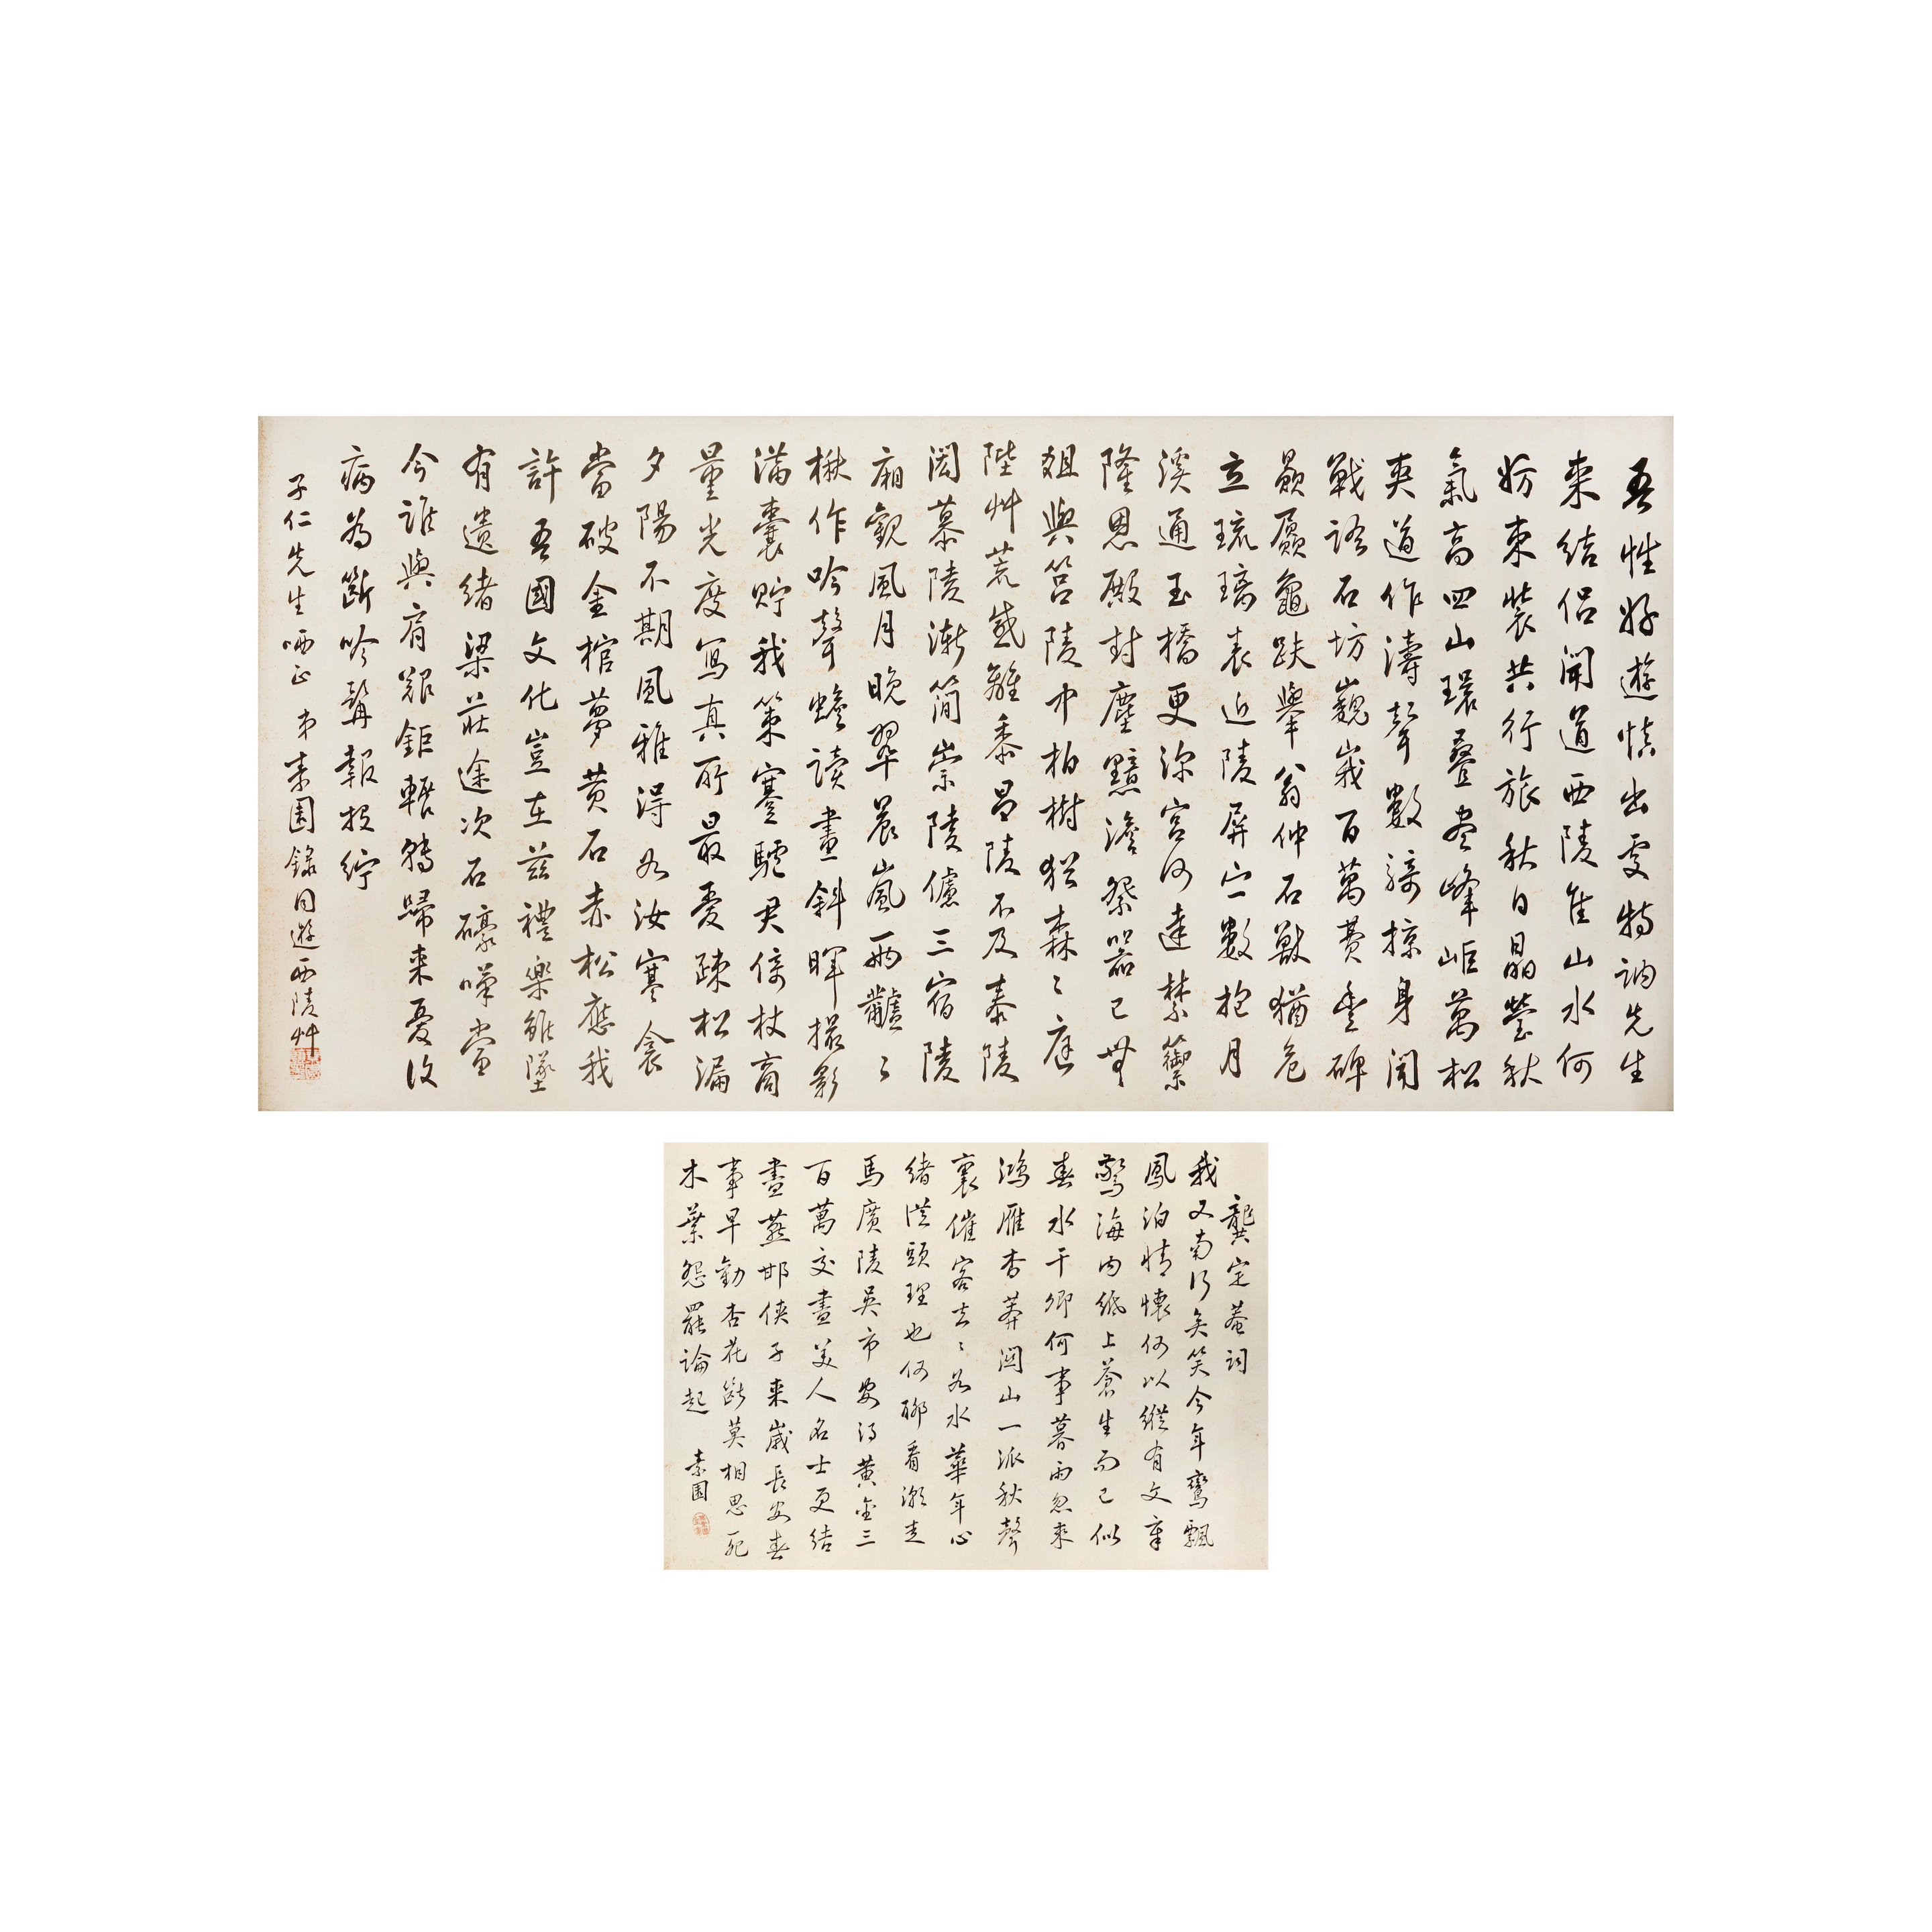 吾性好遊慎出受特訥先生
來結侶聞道西陵佳山水何
妨束裝共行旅秋日晶瑩秋
氣高四山環疊盡峰岠萬松
夾道作濤聲數騎掠身聞
戰誇石坊巍峩百萬費豐碑
贔屭龜趺舉翁仲石獸猶危
立琉璃表近陵屏宀數抱月
溪通玉橋更深宮何達禁籞
隆恩殿封塵黯澹祭器已無
爼與筥陵中柏樹猶森森庭
陛艸荒感離黍昌陵不及泰陵
闊慕陵漸簡崇陵儘三宿陵
廂觀風月晚翠晨嵐雨
楸作吟聲蟾讀畫斜暉撮影
滿囊貯我策蹇驢君倚杖商
量光度寫真所最憂疎松漏
夕陽不期風雅得如汝寒衾
當破金棺夢黃石赤松應我
許吾國文化豈在茲禮樂雖墜
有遺緒梁莊途次石礫嘆當
今誰與肩艱鉅輾轉歸來憂復
病為斷吟髯報投紵
子仁先生哂正 弟素園錄同遊西陵艸
龔定菴詞
我又南行矣笑今年鸞飄
鳳泊情懷何以縱有文章
驚海內紙上蒼生而已似
春水干卿何事暮雨忽來
鴻雁杳莽關山一派秋聲
裏催客去去如水華年心
緒從頭理也何聊看潮走
馬廣陵吳市安得黃金三
百萬交盡美人名士更結
盡燕邯俠子來歲長安春
事早勸杏花斷莫相思死
木葉怨罷論起 素園